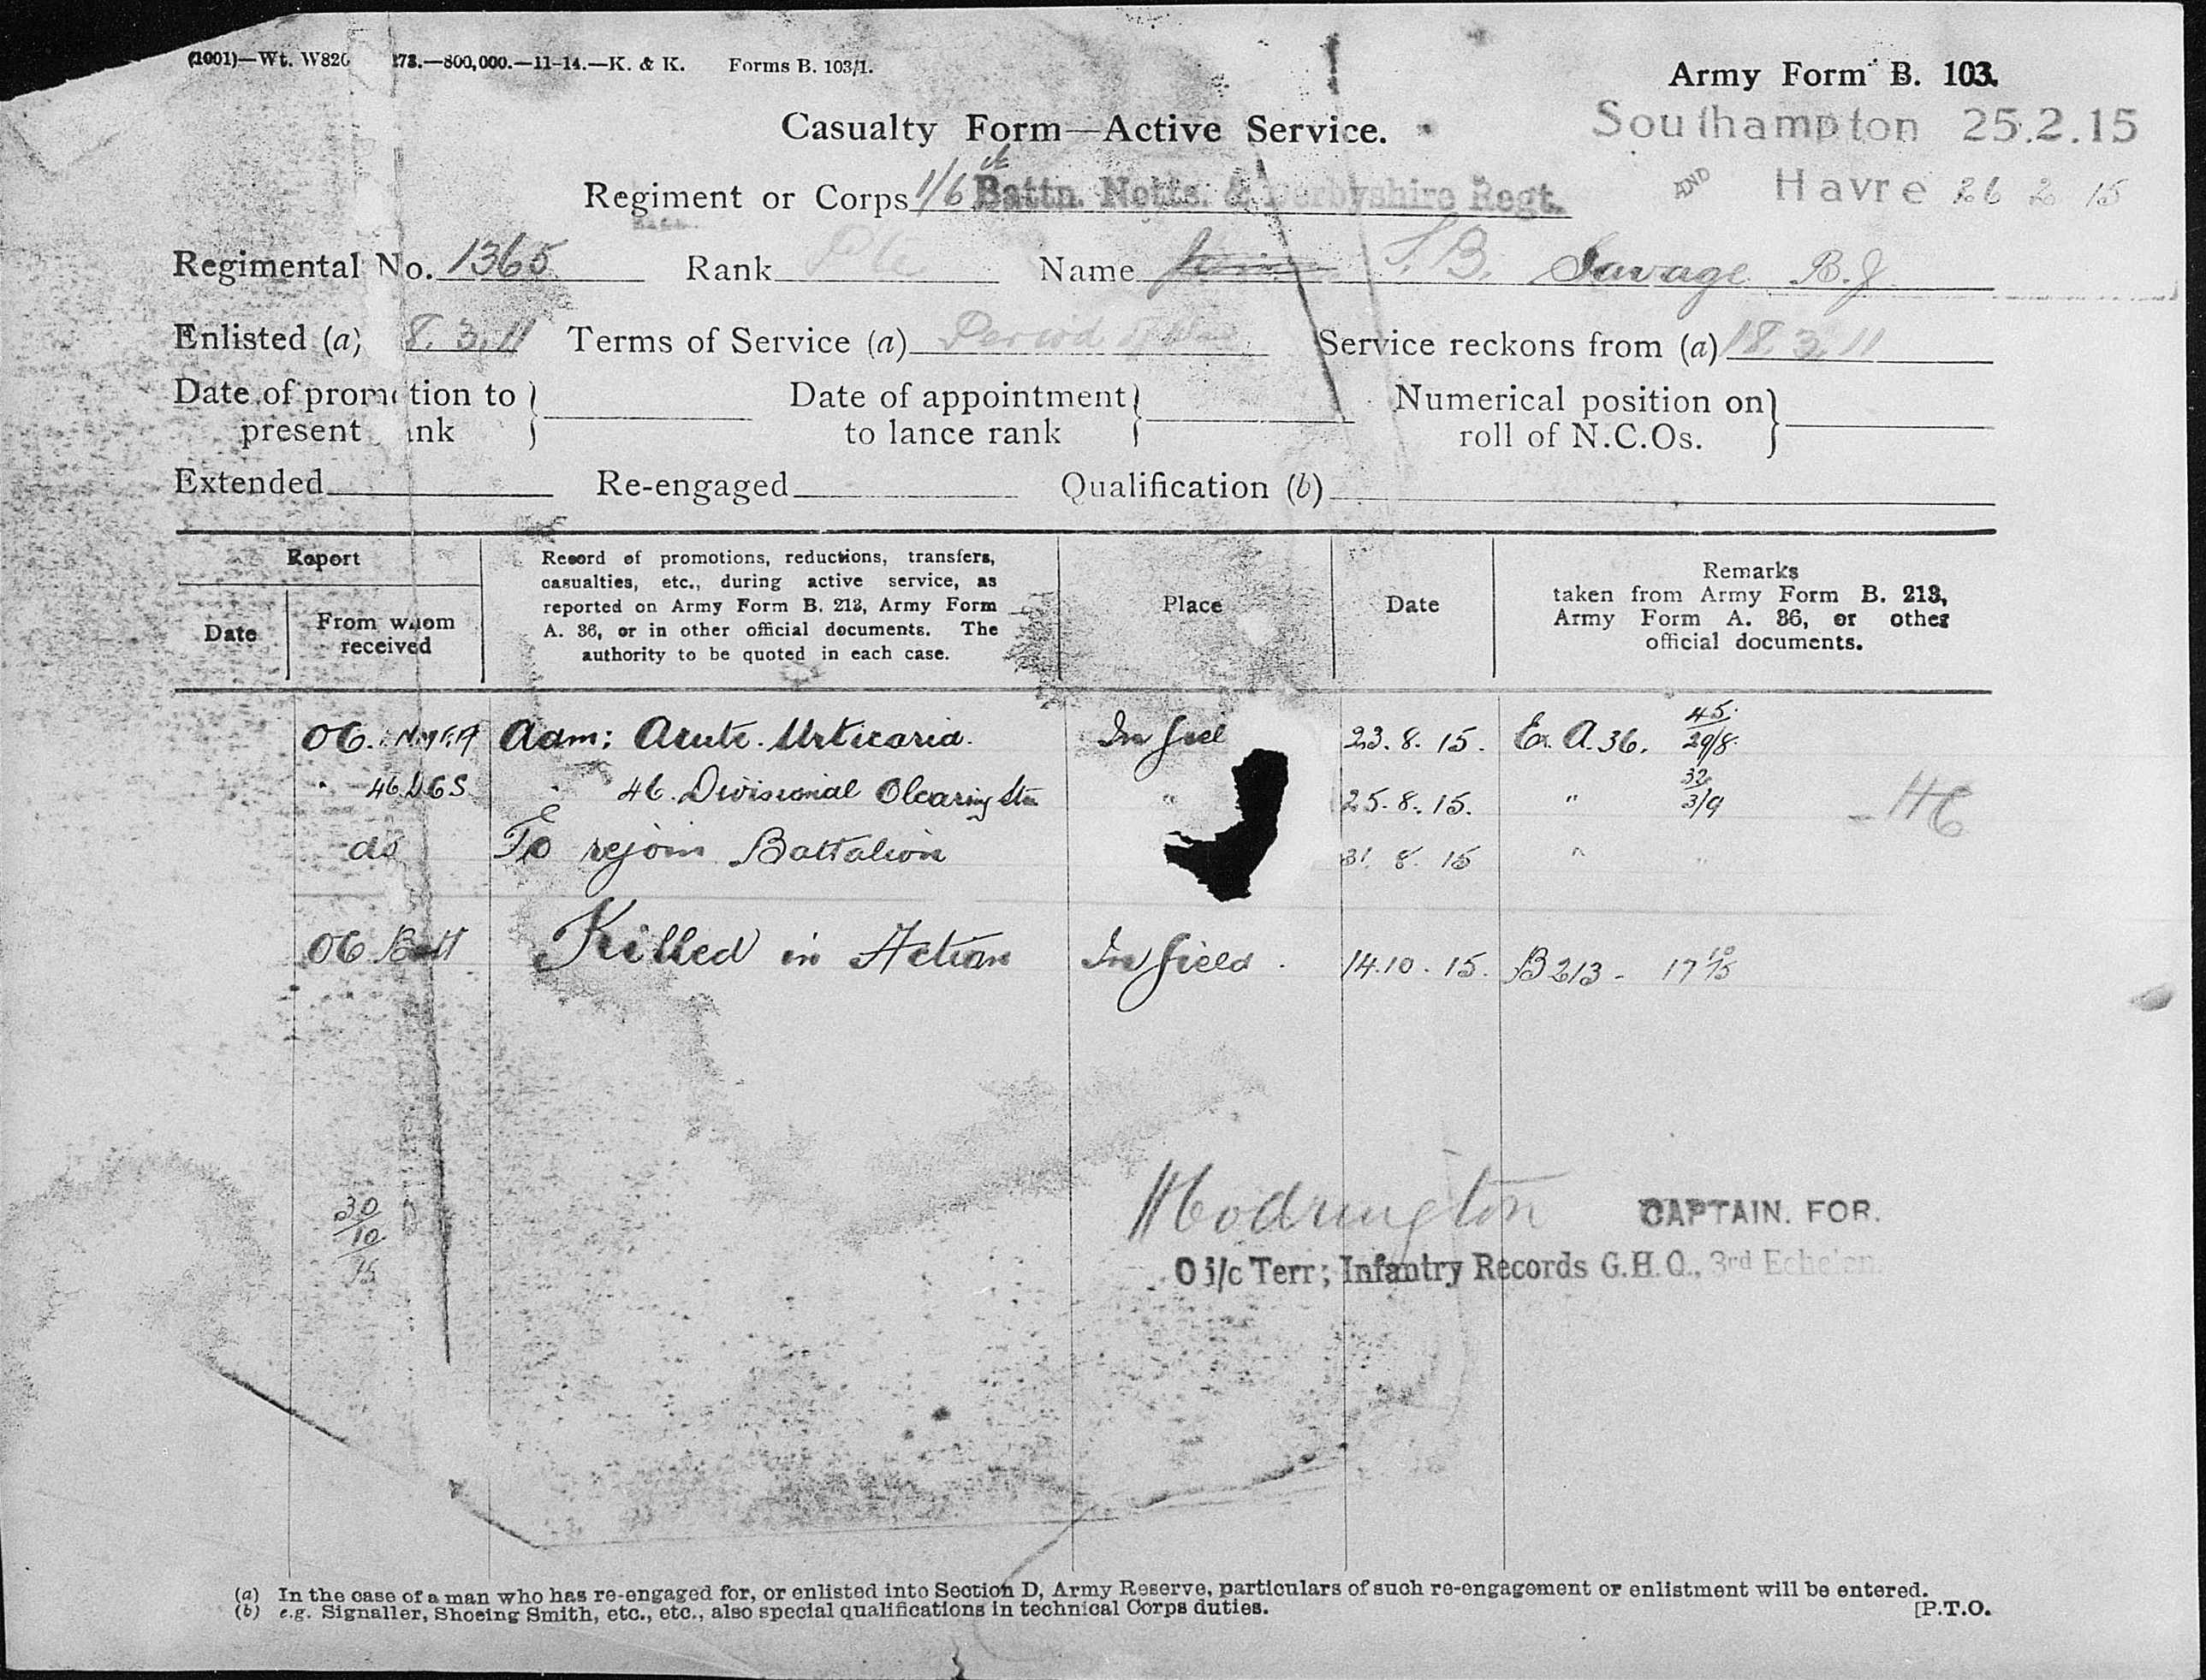 (1001)—Wt. W820 273.—800,000.—11-14.—K. & K. Forms B. 103/1.
Army Form B. 103.
Southampton 25.2.15
AND Havre 26 2 15
Casualty Form—Active Service.
Regiment or Corps 1/6 Battn. Notts. & Derbyshire Regt.
Regimental No. 1365 Rank Pte Name S.B. Savage B.J
Enlisted (a) 8.3.11 Terms of Service (a) Period of Service reckons from (a) 18.3.11
Date of promotion to present rank } Date of appointment to lance rank } Numerical position on roll of N.C.Os. }
Extended Re-engaged Qualification (b)
Report
Date
From whom received
Record of promotions, reductions, transfers, casualties, etc., during active service, as reported on Army Form B. 213, Army Form A. 36, or in other official documents. The authority to be quoted in each case.
Place
Date
Remarks taken from Army Form B. 213, Army Form A. 36, or other official documents.
OC. Adm: Acute Urticaria. In fiel 23.8.15. Ex. A.36. 45 29/8.
" 46 DCS " 46 Divisional Clearing Stn " 25.8.15. " 32 3/9
HC
do To rejoin Battalion 31 8 15 " "
OC Batt Killed in Action In field. 14.10.15. B213 - 17 10/15
30/10/15
CAPTAIN. FOR.
O i/c Terr; Infantry Records G.H.Q., 3rd Echelon.
(a) In the case of a man who has re-engaged for, or enlisted into Section D, Army Reserve, particulars of such re-engagement or enlistment will be entered.
(b) e.g. Signaller, Shoeing Smith, etc., etc., also special qualifications in technical Corps duties.
[P.T.O.